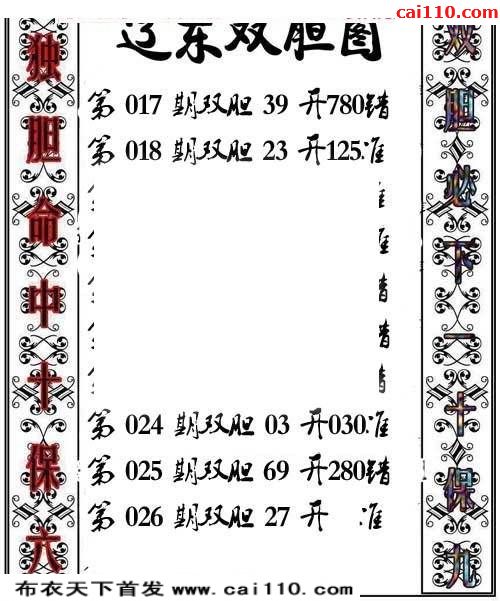 cai110.com
辽东双胆图
独胆命中十保六
双胆必下一十保九
第 017 期双胆 39 开780错
第 018 期双胆 23 开125准
准
准
错
错
第 024 期双胆 03 开030准
第 025 期双胆 69 开280错
第 026 期双胆 27 开 准
布衣天下首发 www.cai110.com